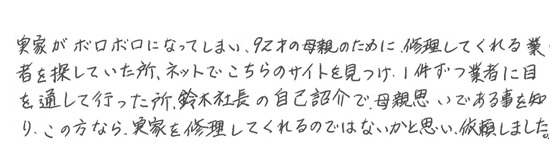 実家がボロボロになってしまい、92才の母親のために、修理してくれる業
者を探していた所、ネットでこちらのサイトを見つけ、1件ずつ業者に目
を通して行った所、鈴木社長の自己紹介で、母親思いである事を知
り、この方なら、実家を修理してくれるのではないかと思い、依頼しました。